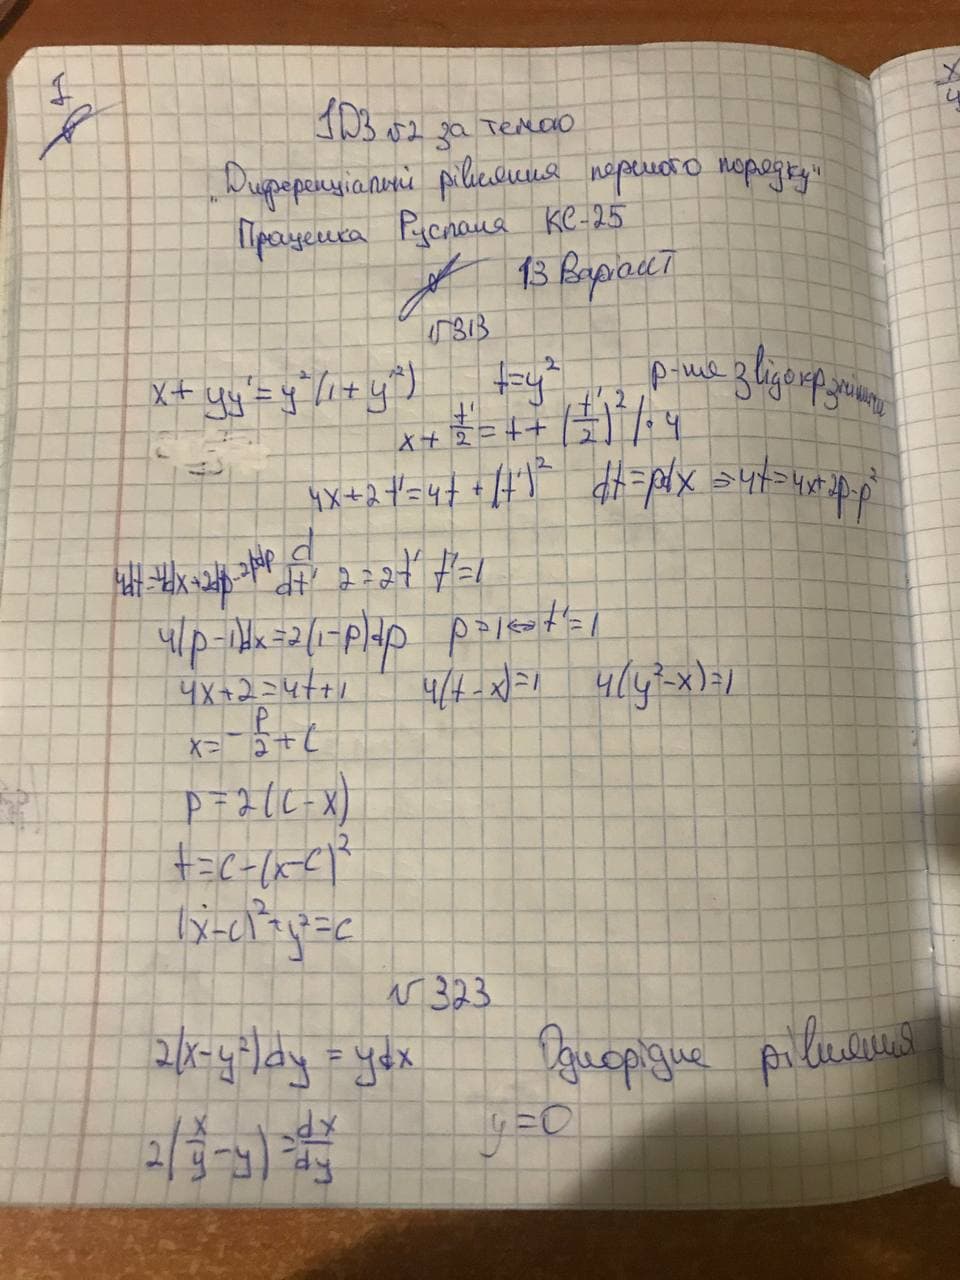 I
ІДЗ №2 за темою
"Диференціальні рівняння першого порядку"
Праценка Руслана КС-25
13 Варіант
№313
x + yy' = y²(1 + y'²) t = y² р-ня з відокр змінними
x + t'/2 = t + (t'/2)² |· 4
4x + 2t' = 4t + (t')² dt = pdx ⇒ 4t = 4x + 2p - p²
4dt = 4dx + 2dp - 2pdp d/dt' 2 = 2t' t' = 1
4(p-1)dx = 2(1-p)dp p = 1 ⇔ t' = 1
4x + 2 = 4t + 1 4(t - x) = 1 4(y² - x) = 1
x = -p/2 + C
p = 2(C - x)
t = C - (x - C)²
(x - C)² + y² = C
№323
2(x - y²)dy = ydx Однорідне рівняння
2(x/y - y) = dx/dy y = 0
x/y